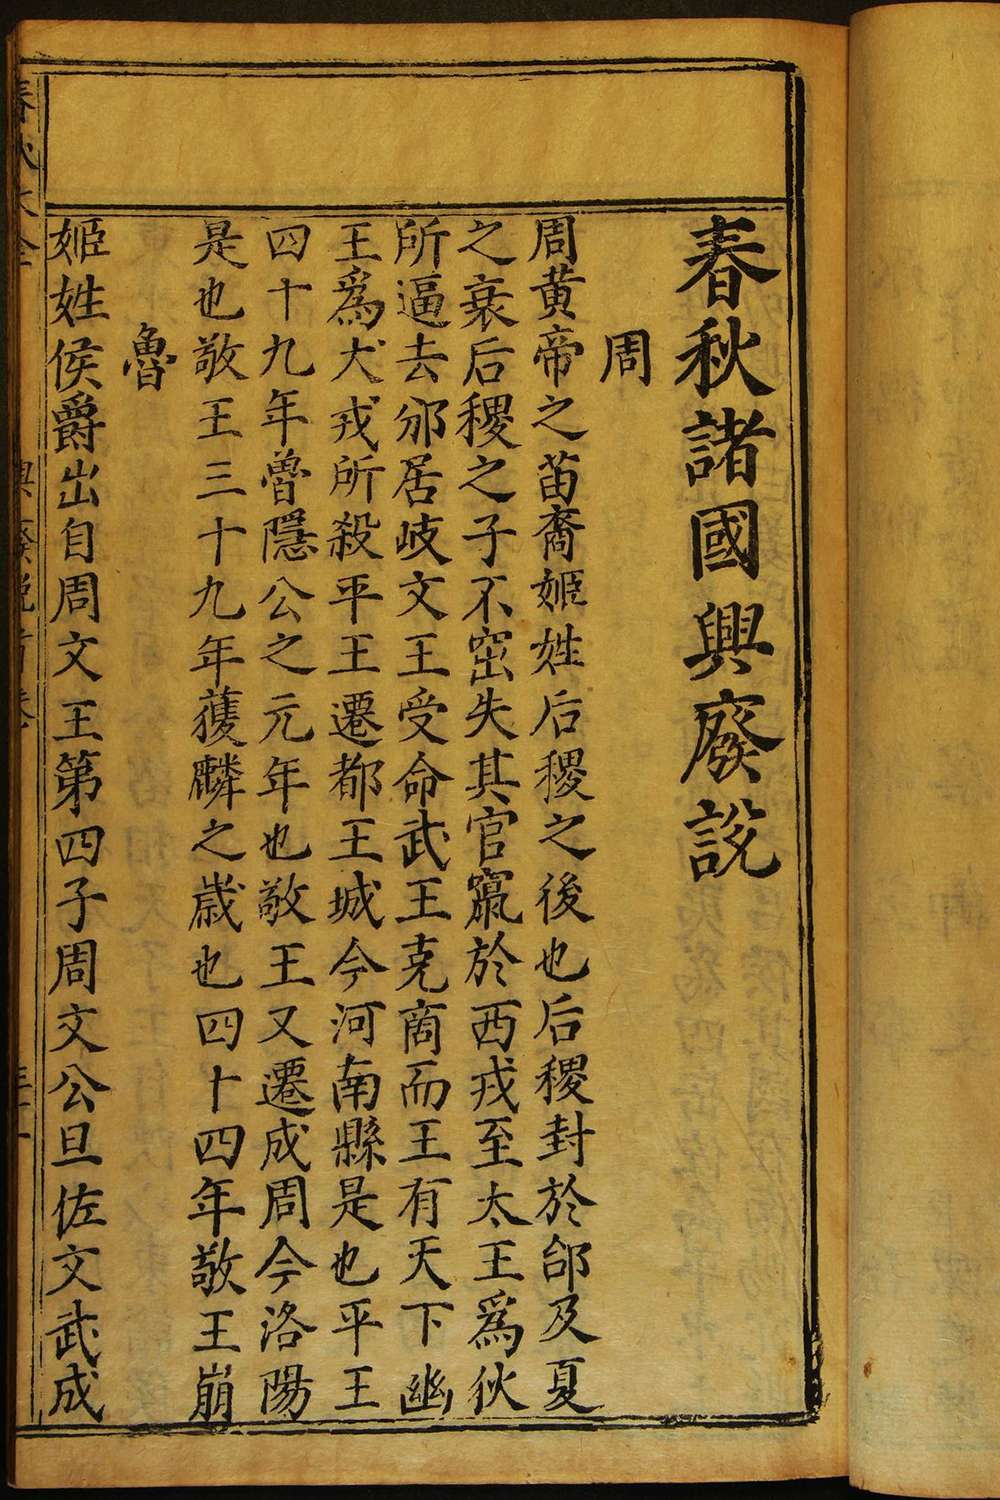 春秋諸國興廢説
周
周黄帝之苗裔姬姓后稷之後也后稷封於邰及夏
之衰后稷之子不窋失其官竄於西戎至太王爲狄
所逼去邠居岐文王受命武王克商而王有天下幽
王爲犬戎所殺平王遷都王城今河南縣是也平王
四十九年魯隱公之元年也敬王又遷成周今洛陽
是也敬王三十九年獲麟之歳也四十四年敬王崩
魯
姬姓侯爵出自周文王第四子周文公旦佐文武成